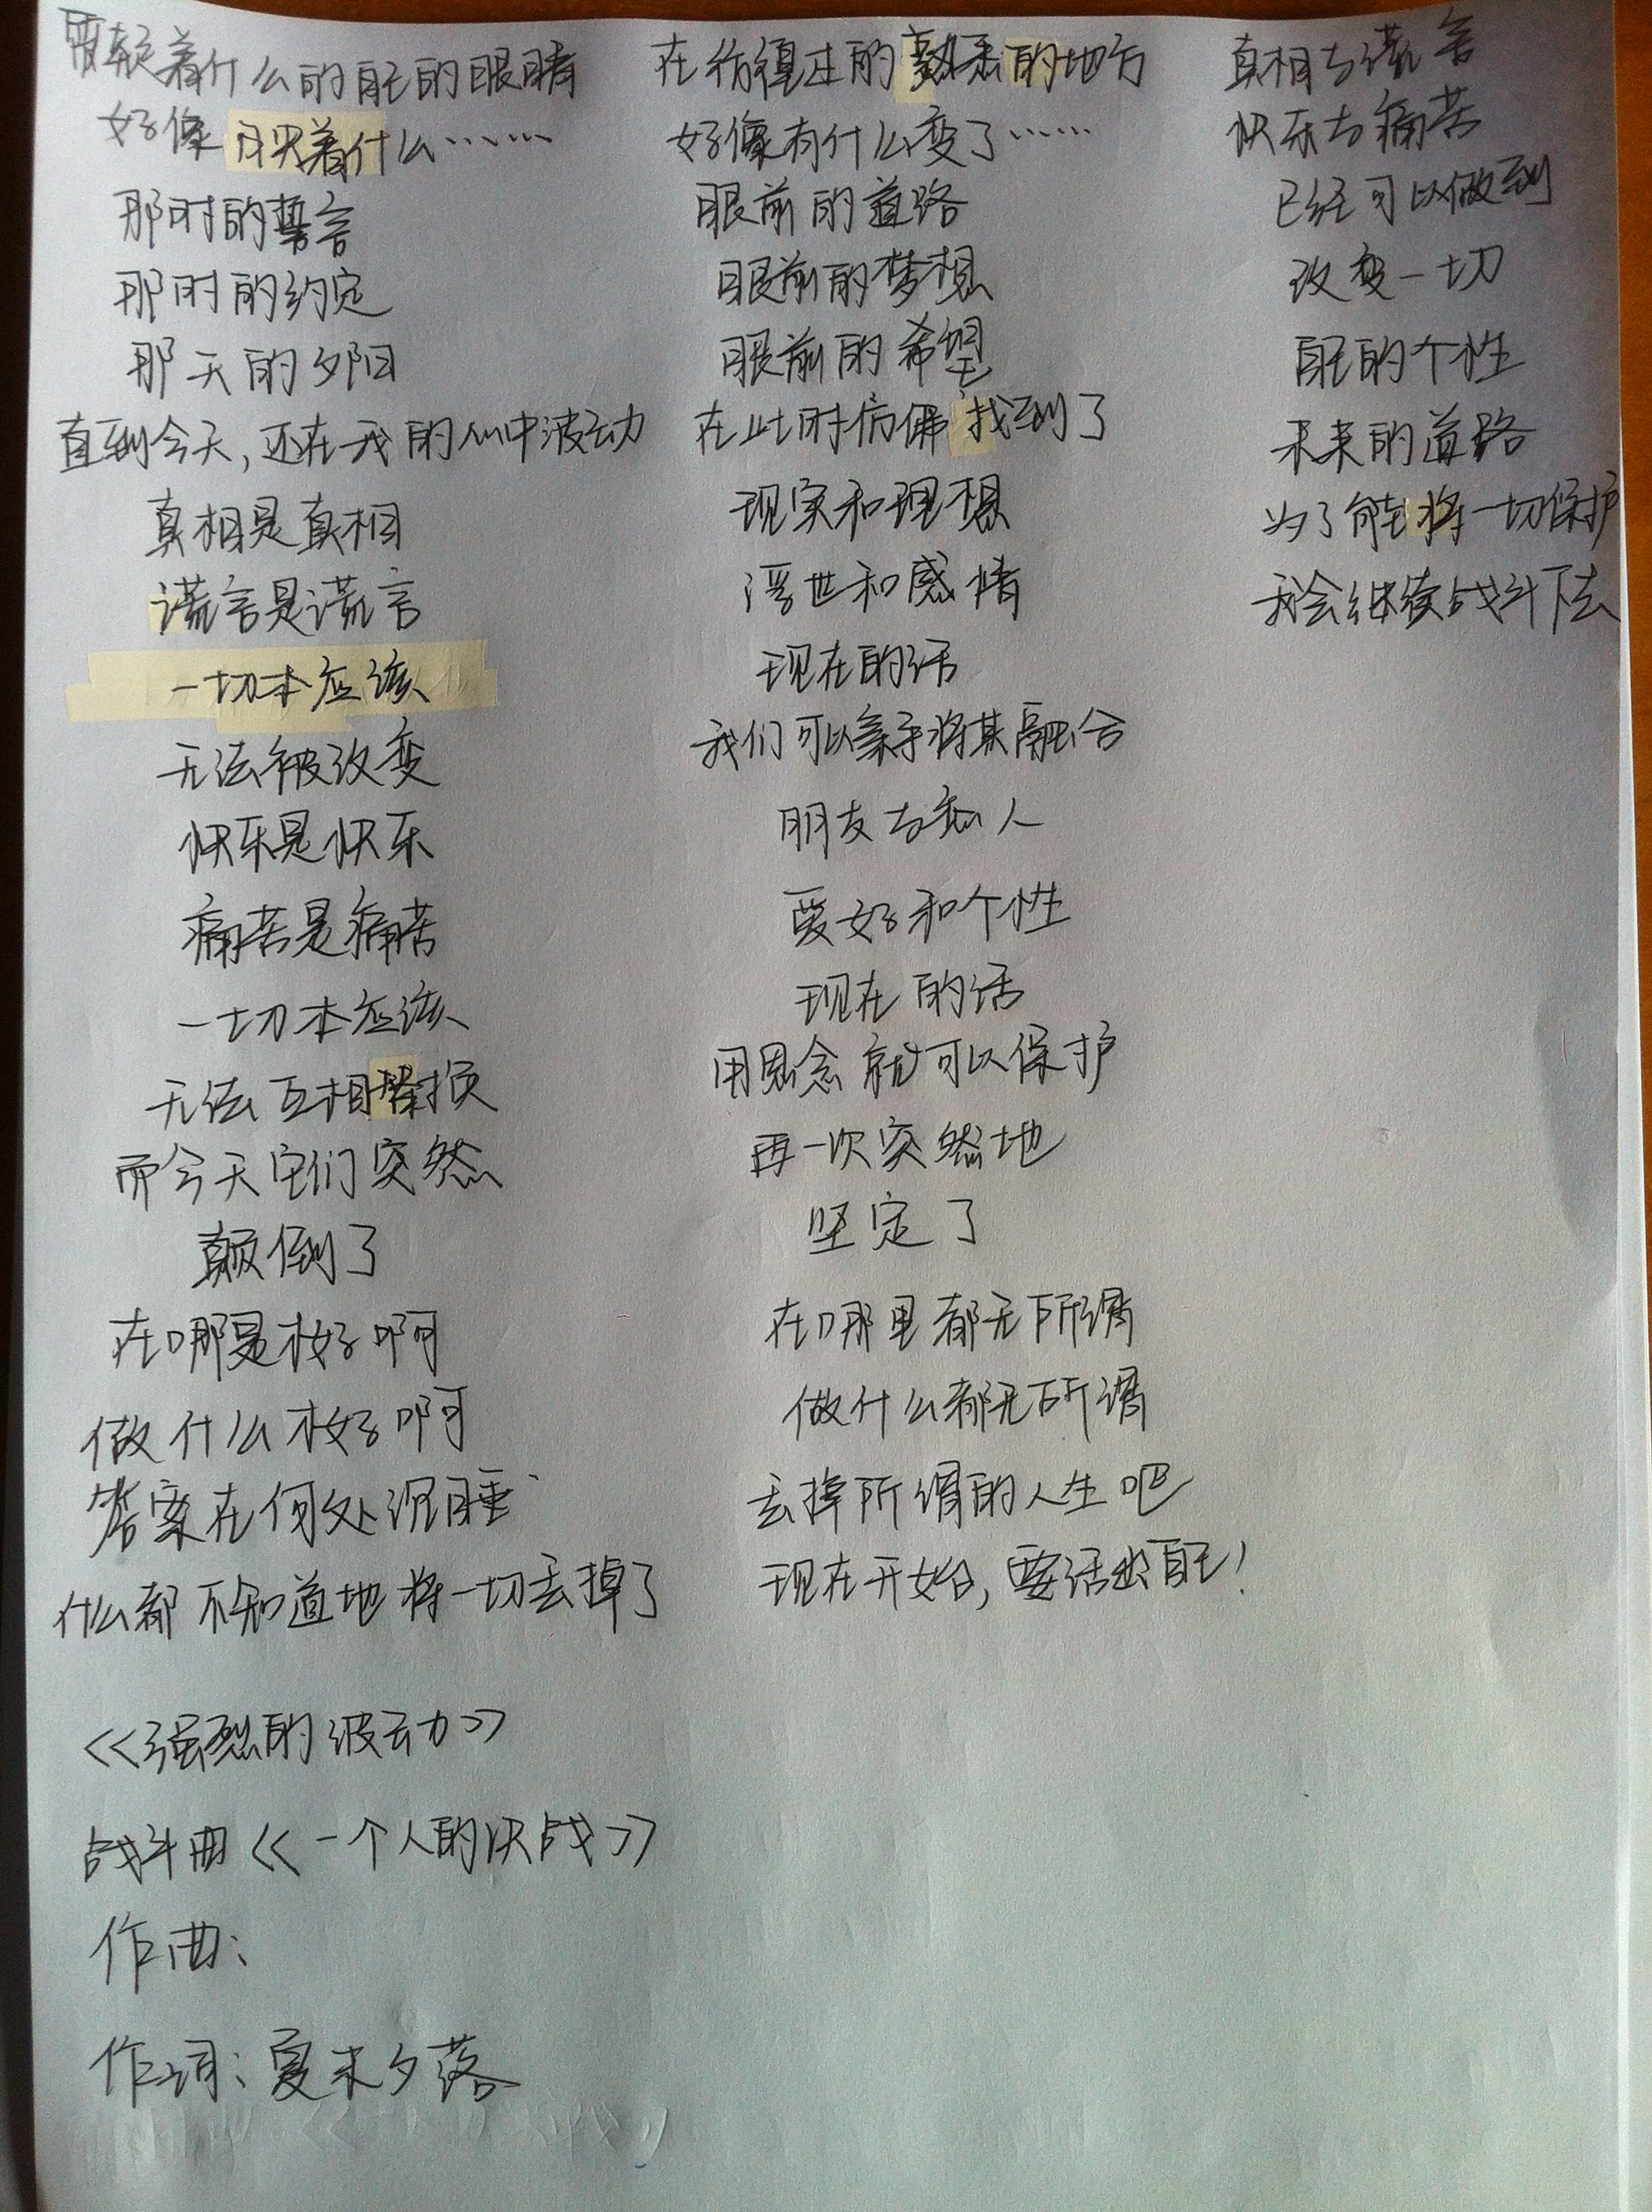 着什么的自己的眼睛
好像映着什么……
那时的誓言
那时的约定
那天的夕阳
直到今天,还在我的心中波动
真相是真相
谎言是谎言
一切本应该
无法被改变
快乐是快乐
痛苦是痛苦
一切本应该
无法互相替换
而今天它们突然
颠倒了
在哪里才好啊
做什么才好啊
答案在何处沉睡
什么都不知道地将一切丢掉了
<<强烈的波动>>
战斗曲<<一个人的决战>>
作曲:
作词:夏末夕落
在彷徨过的熟悉的地方
好像有什么变了……
眼前的道路
眼前的梦想
眼前的希望
在此时仿佛找到了
现实和理想
浮世和感情
现在的话
我们可以亲手将其融合
朋友与恋人
爱好和个性
现在的话
用思念就可以保护
再一次突然地
坚定了
在哪里都无所谓
做什么都无所谓
丢掉所谓的人生吧
现在开始,要活出自己!
真相与谎言
快乐与痛苦
已经可以做到
改变一切
自己的个性
未来的道路
为了能将一切保护
我会继续战斗下去